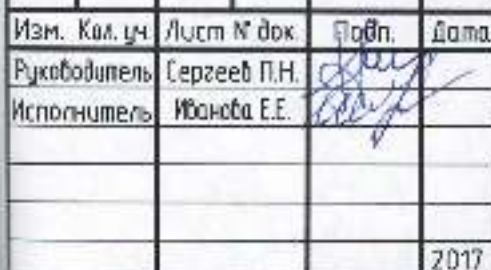 Изм. Кол. уч Лист № док. Подп. Дата
Руководитель Сергеев П.Н.
Исполнитель Иванова Е.Е.
2017